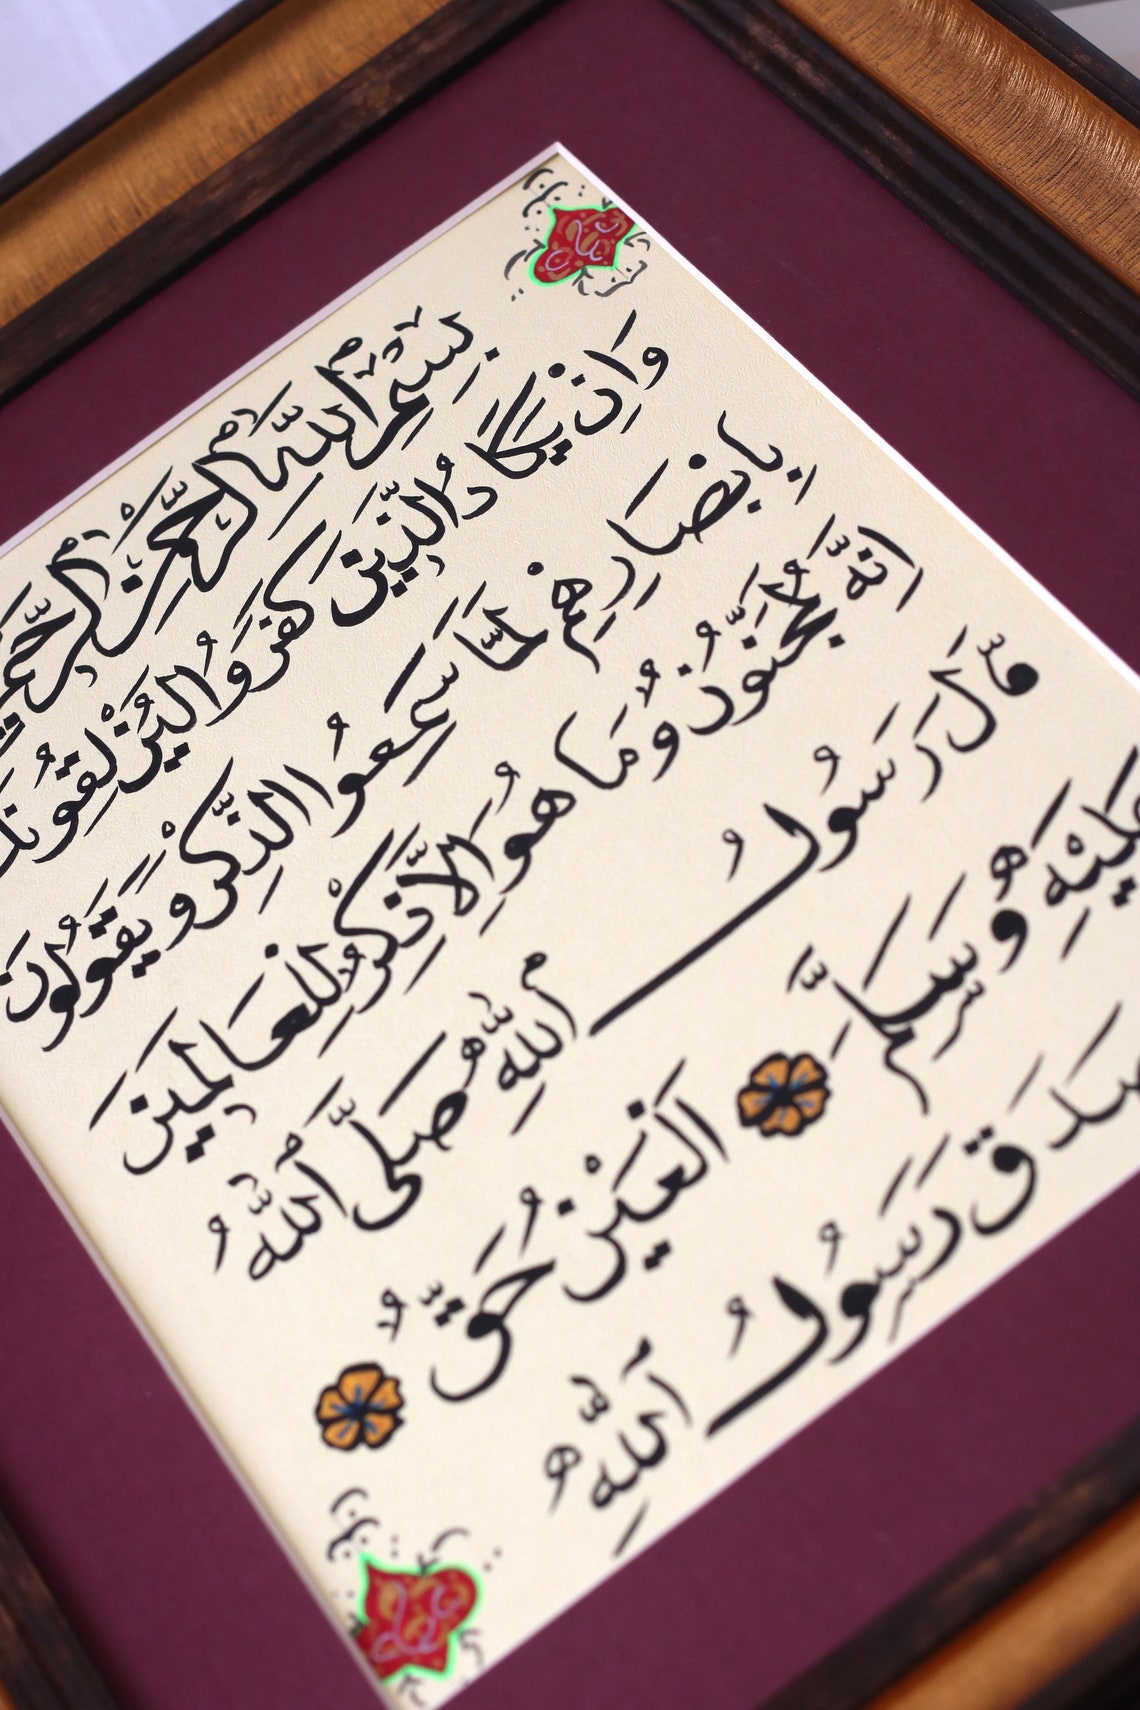 بِسْمِ اللَّهِ الرَّحْمٰنِ الرَّحِيمِ
وَاِنْ يَكَادُ الَّذِينَ كَفَرَوُا لَيُزْلِقُونَكَ
بِاَبْصَارِهِمْ لَمَّا سَمِعُوا الذِّكْرَ وَيَقُولُونَ
اِنَّهُ لَمَجْنُونٌ وَمَا هُوَ اِلَّا ذِكْرٌ لِلْعَالَمِينَ
قَالَ رَسُولُ اللَّهِ صَلَّى اللَّهُ
عَلَيْهِ وَسَلَّمَ الْعَيْنُ حَقٌّ
صَدَقَ رَسُولُ اللَّهِ